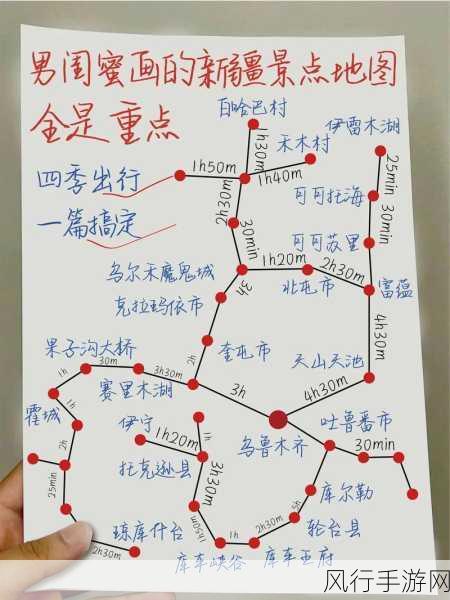 男闺蜜画的新疆景点地图
全是重点
白哈巴村
伊雷木湖
1h30m
禾木村
四季出行
1h50m
1h40m
25min
2h30m
可可托海
30min
一篇搞定
30min
可可苏里
1h20m
2h30m
乌尔禾魔鬼城
3h
北屯市
富蕴
克拉玛依市
果子沟大桥
2h
奎屯市
4h30m
30m
天山天池
1h
3h30m
赛里木湖
3h
4h30m
霍城
伊宁
1h
乌鲁木齐
吐鲁番市
2h
1h20m
30min
托克逊县
25min
3h30m
库尔勒
琼库什台
1h50m
5h
轮台县
1h
2h30m
2h30m
库车峡谷
库车王府
风行手游网